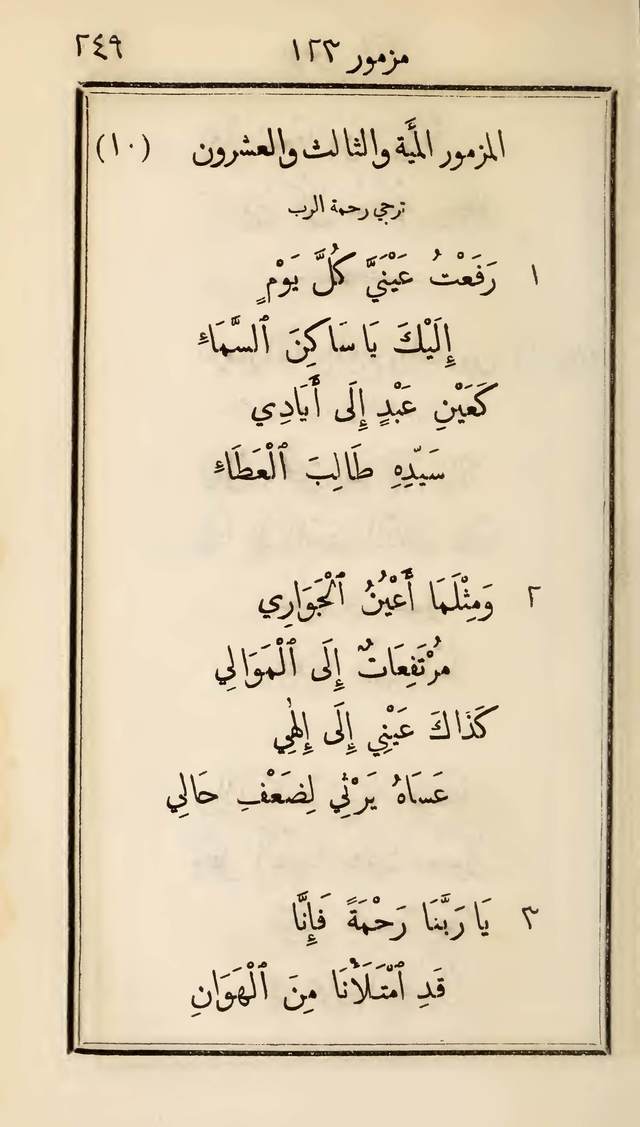 مزمور ١٢٣ ٢٤٩
المزمور المئَة والثالث والعشرون (١٠)
ترجي رحمة الرب
١ رَفَعْتُ عَيْنَيَّ كُلَّ يَوْمٍ
إِلَيْكَ يَا سَاكِنَ ٱلسَّمَاءِ
كَعَيْنِ عَبْدٍ إِلَى أَيَادِي
سَيِّدِهِ طَالِبَ ٱلْعَطَاءِ
٢ وَمِثْلَمَا أَعْيُنُ ٱلْجَوَارِي
مُرْتَفِعَاتٌ إِلَى ٱلْمَوَالِي
كَذَاكَ عَيْنِي إِلَى إِلٰهِي
عَسَاهُ يَرْثِي لِضَعْفِ حَالِي
٣ يَا رَبَّنَا رَحْمَةً فَإِنَّا
قَدِ ٱمْتَلَأْنَا مِنَ ٱلْهَوَانِ